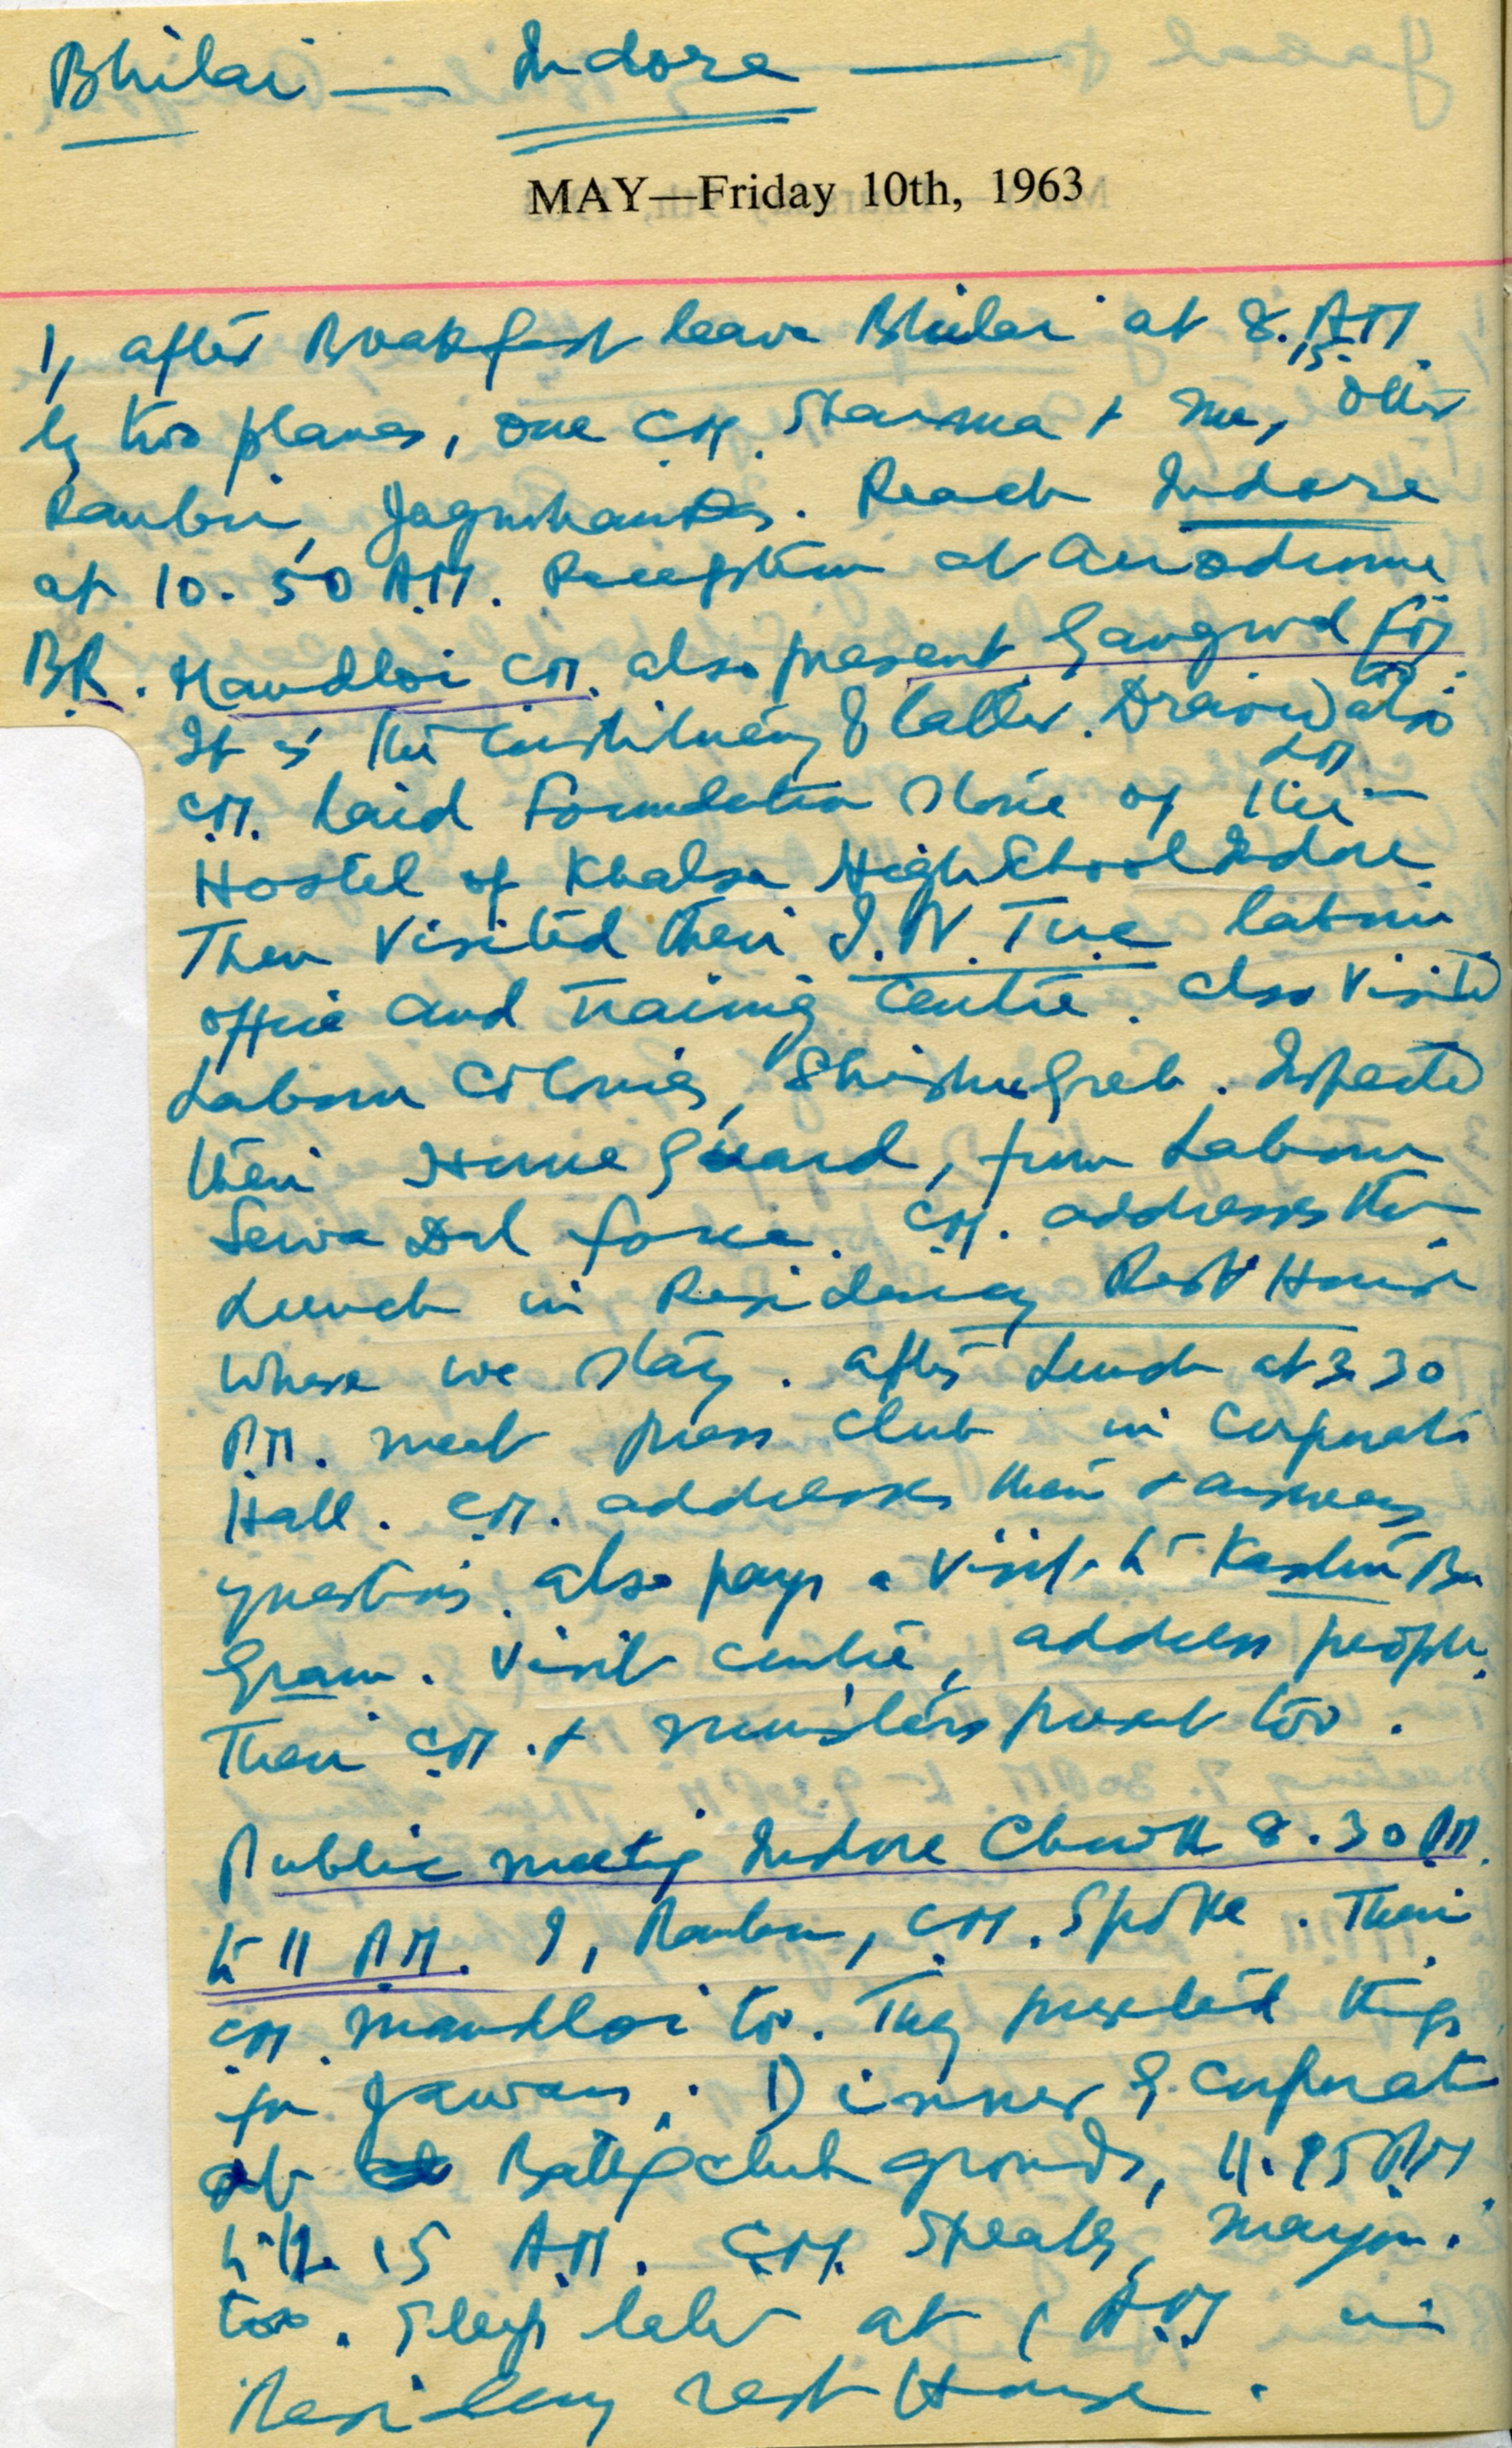 Bhilai — Indore —
MAY—Friday 10th, 1963
1, after Breakfast leave Bhilai at 8.15 AM.
by two planes, one CM. Sharma + me, other
Ranbir, Jagmohan. Reach Indore
at 10.50 AM. Reception at Aerodrome
BR. Mandloi CM. also present Gangwal FM too.
It is the constituency of latter. Dravid also LM
CM. laid Foundation Stone of the
Hostel of Khalsa High School Indore.
Then visited their I.N.Tuc labour
office and Training Centre. also visited
Labour Colonies, Shishugreh. Inspected
their Home Guard, from Labour
Sewa Dal force. CM. addresses them
Lunch in Residency Rest House
where we stay. after Lunch at 3.30
P.M. meet press club in Corporation
Hall. CM. addresses them + answers
questions. also pays a visit to Kasturba
Gram. Visit centre, address people.
Their CM. + ministers present too.
Public meeting Indore Chowk 8.30 PM.
to 11 P.M. I, Ranbir, CM. Spoke. Their
CM. Mandloi too. They presented things
for Jawans. Dinner of Corporation
at club grounds, 11.15 PM
to 12.15 A.M. C.M. Speaks, Mayor.
too. Sleep later at 1 A.M in
Residency rest House.